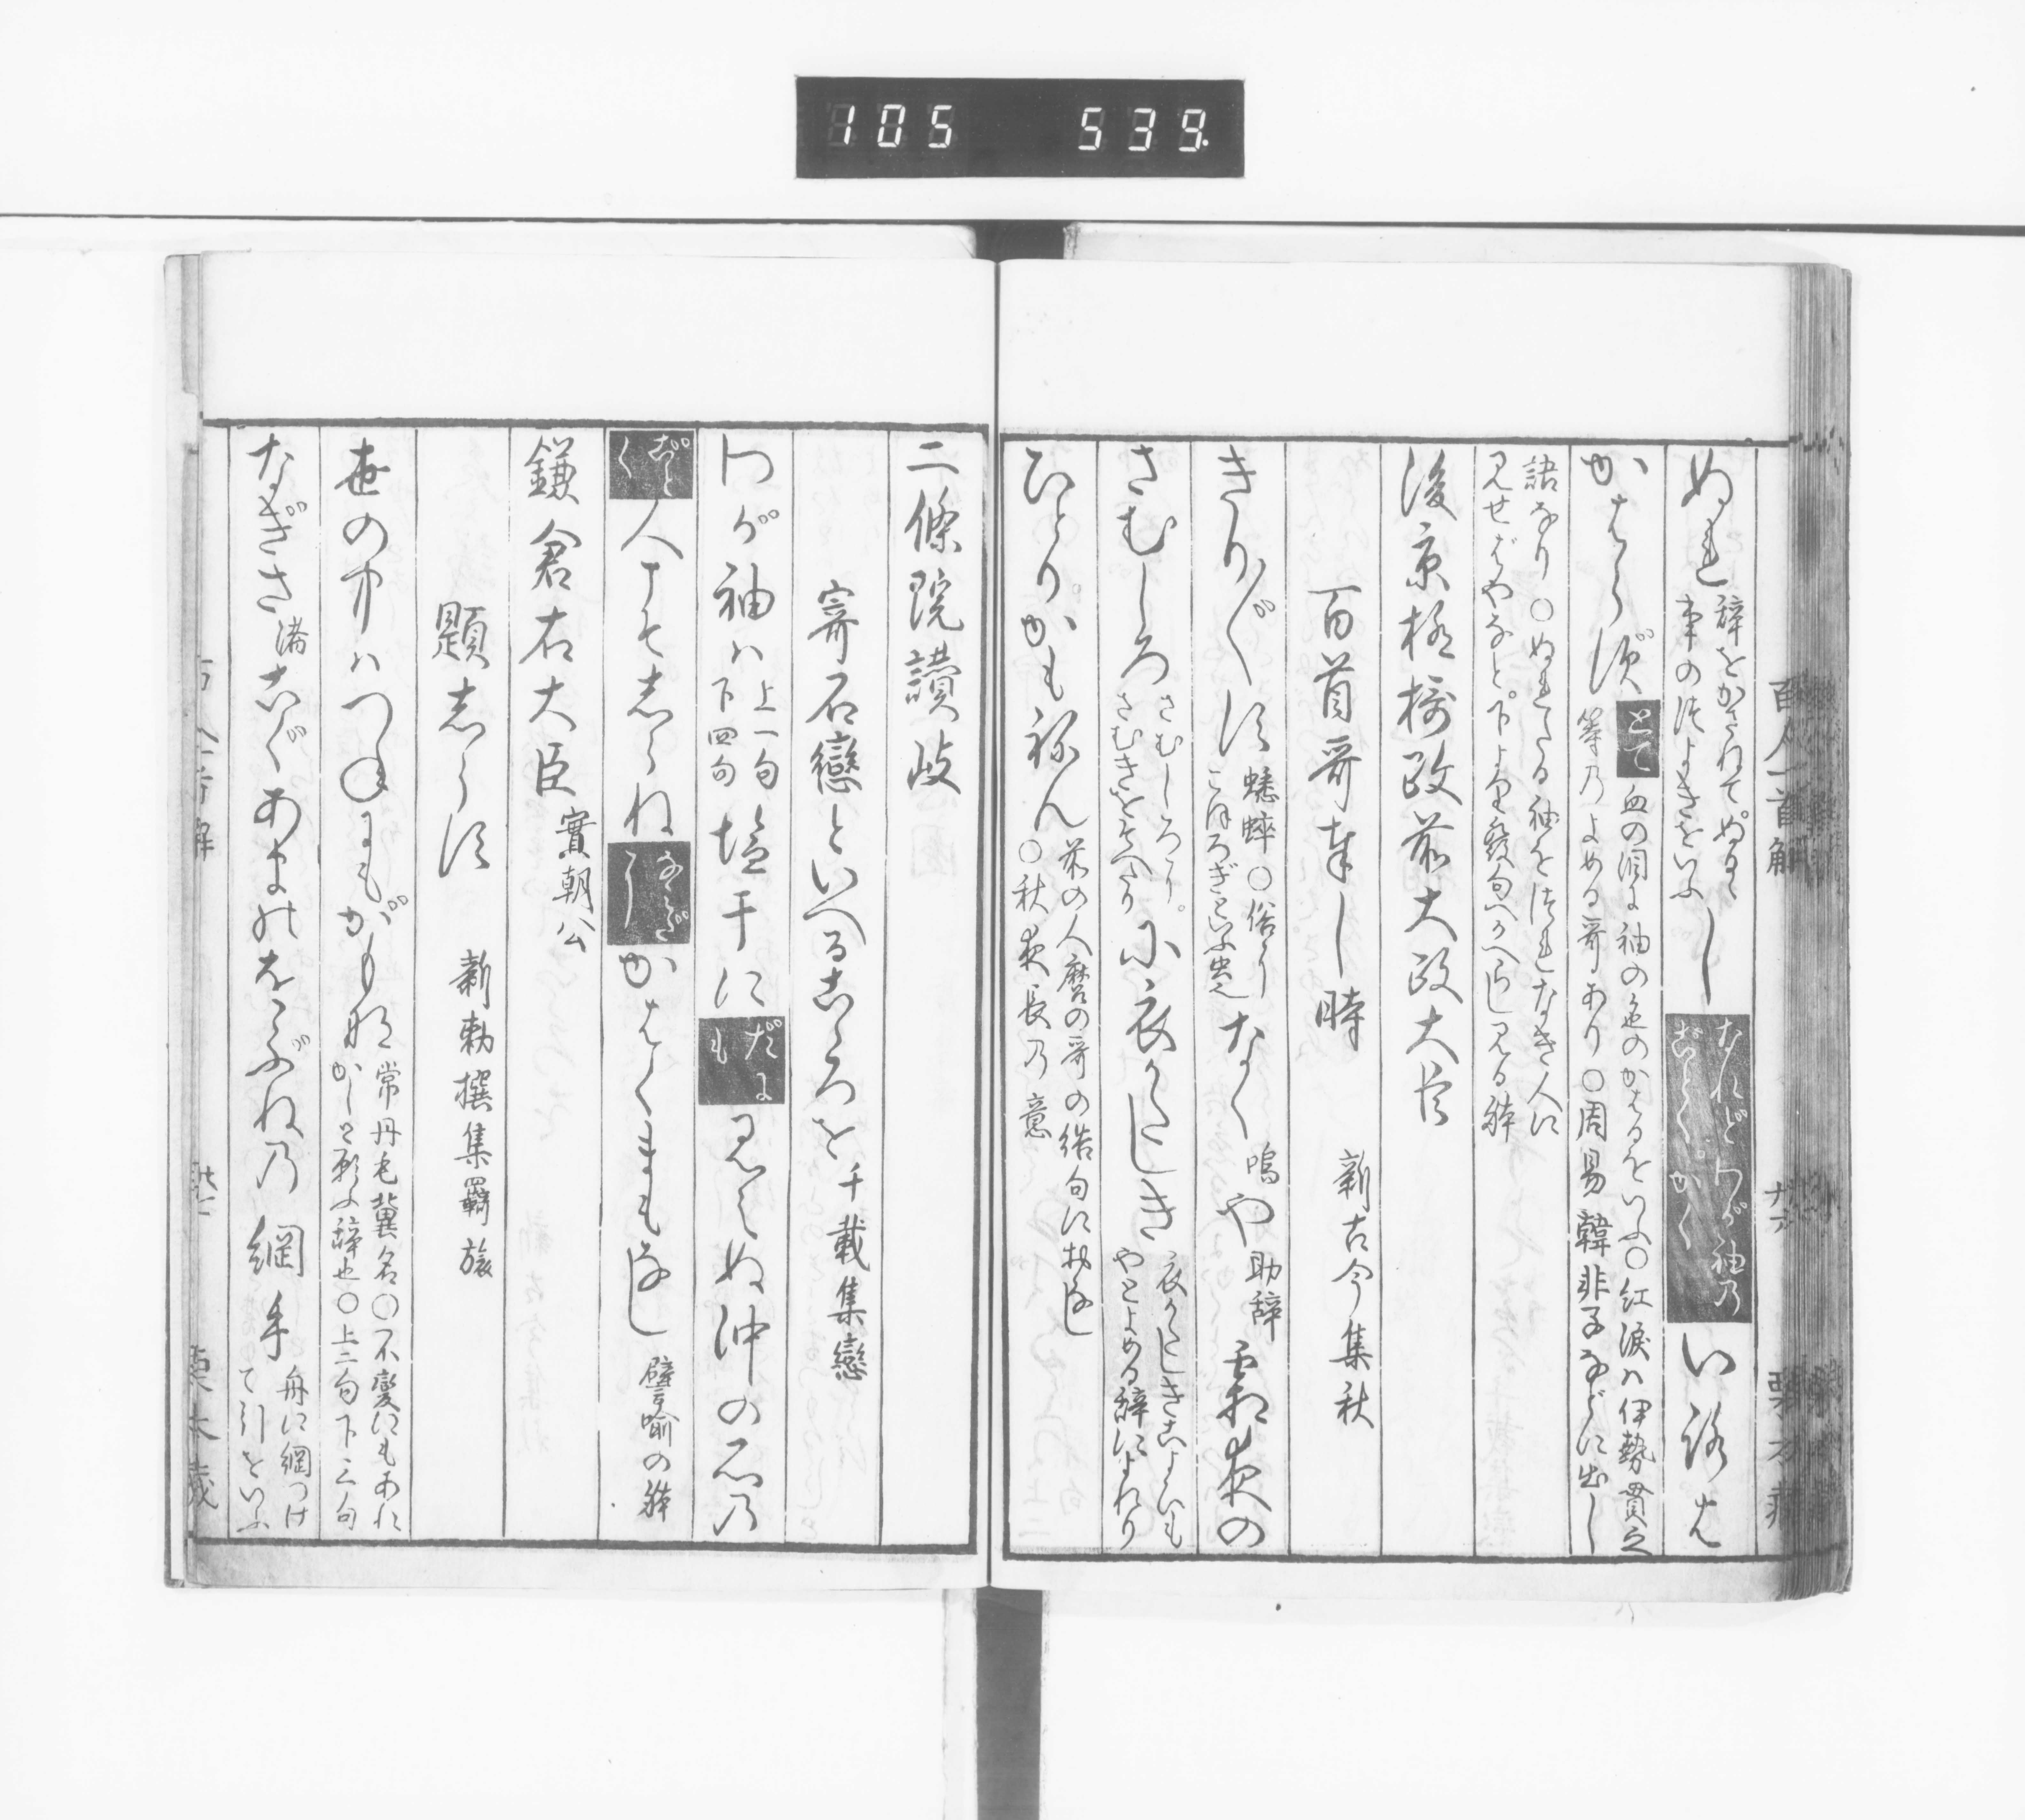 105 539
百人一首解
ぬれ 辞をかさねてぬるゝ
事のつよきをいふ
し なれどわが袖の
ごとくかく いろは
かはらず とて 血の涙に袖の色のかはるをいふ○紅涙ハ伊勢貫之
等のよめる哥あり○周易韓非子などに出し
語なり○ぬれたる袖をつれなき人に
見せばやなと下より発句へかへし見る躰
後京極摂政前大政大臣
百首哥奉し時 新古今集秋
きり〴〵す 蟋蟀○俗に
こほろぎといふ虫也 なく 鳴 や 助辞 霜夜の
さむしろ さむしろに
さむきをそへたり に衣かたしき 衣かたしきこよひも
やとよめる辞によれり
ひとりかもねん 前の人麿の哥の結句に相同し
○秋夜長の意
二條院讃岐
寄石戀といへるこゝろを 千載集戀
わが袖ハ 上一句
下四句 塩干に だに
も 見えぬ沖の石の
ごと
く 人こそしらね かはくまもなし 譬喩の躰
鎌倉右大臣 實朝公
題しらす 新勅撰集羇旅
世の中ハつねにもがもな 常丹毛冀名○不變にもあれ
かしと願ふ辞也○上二句下三句
なぎさ 渚 こぐあまのをぶねの綱手 舟に綱つけ
て引をいふ